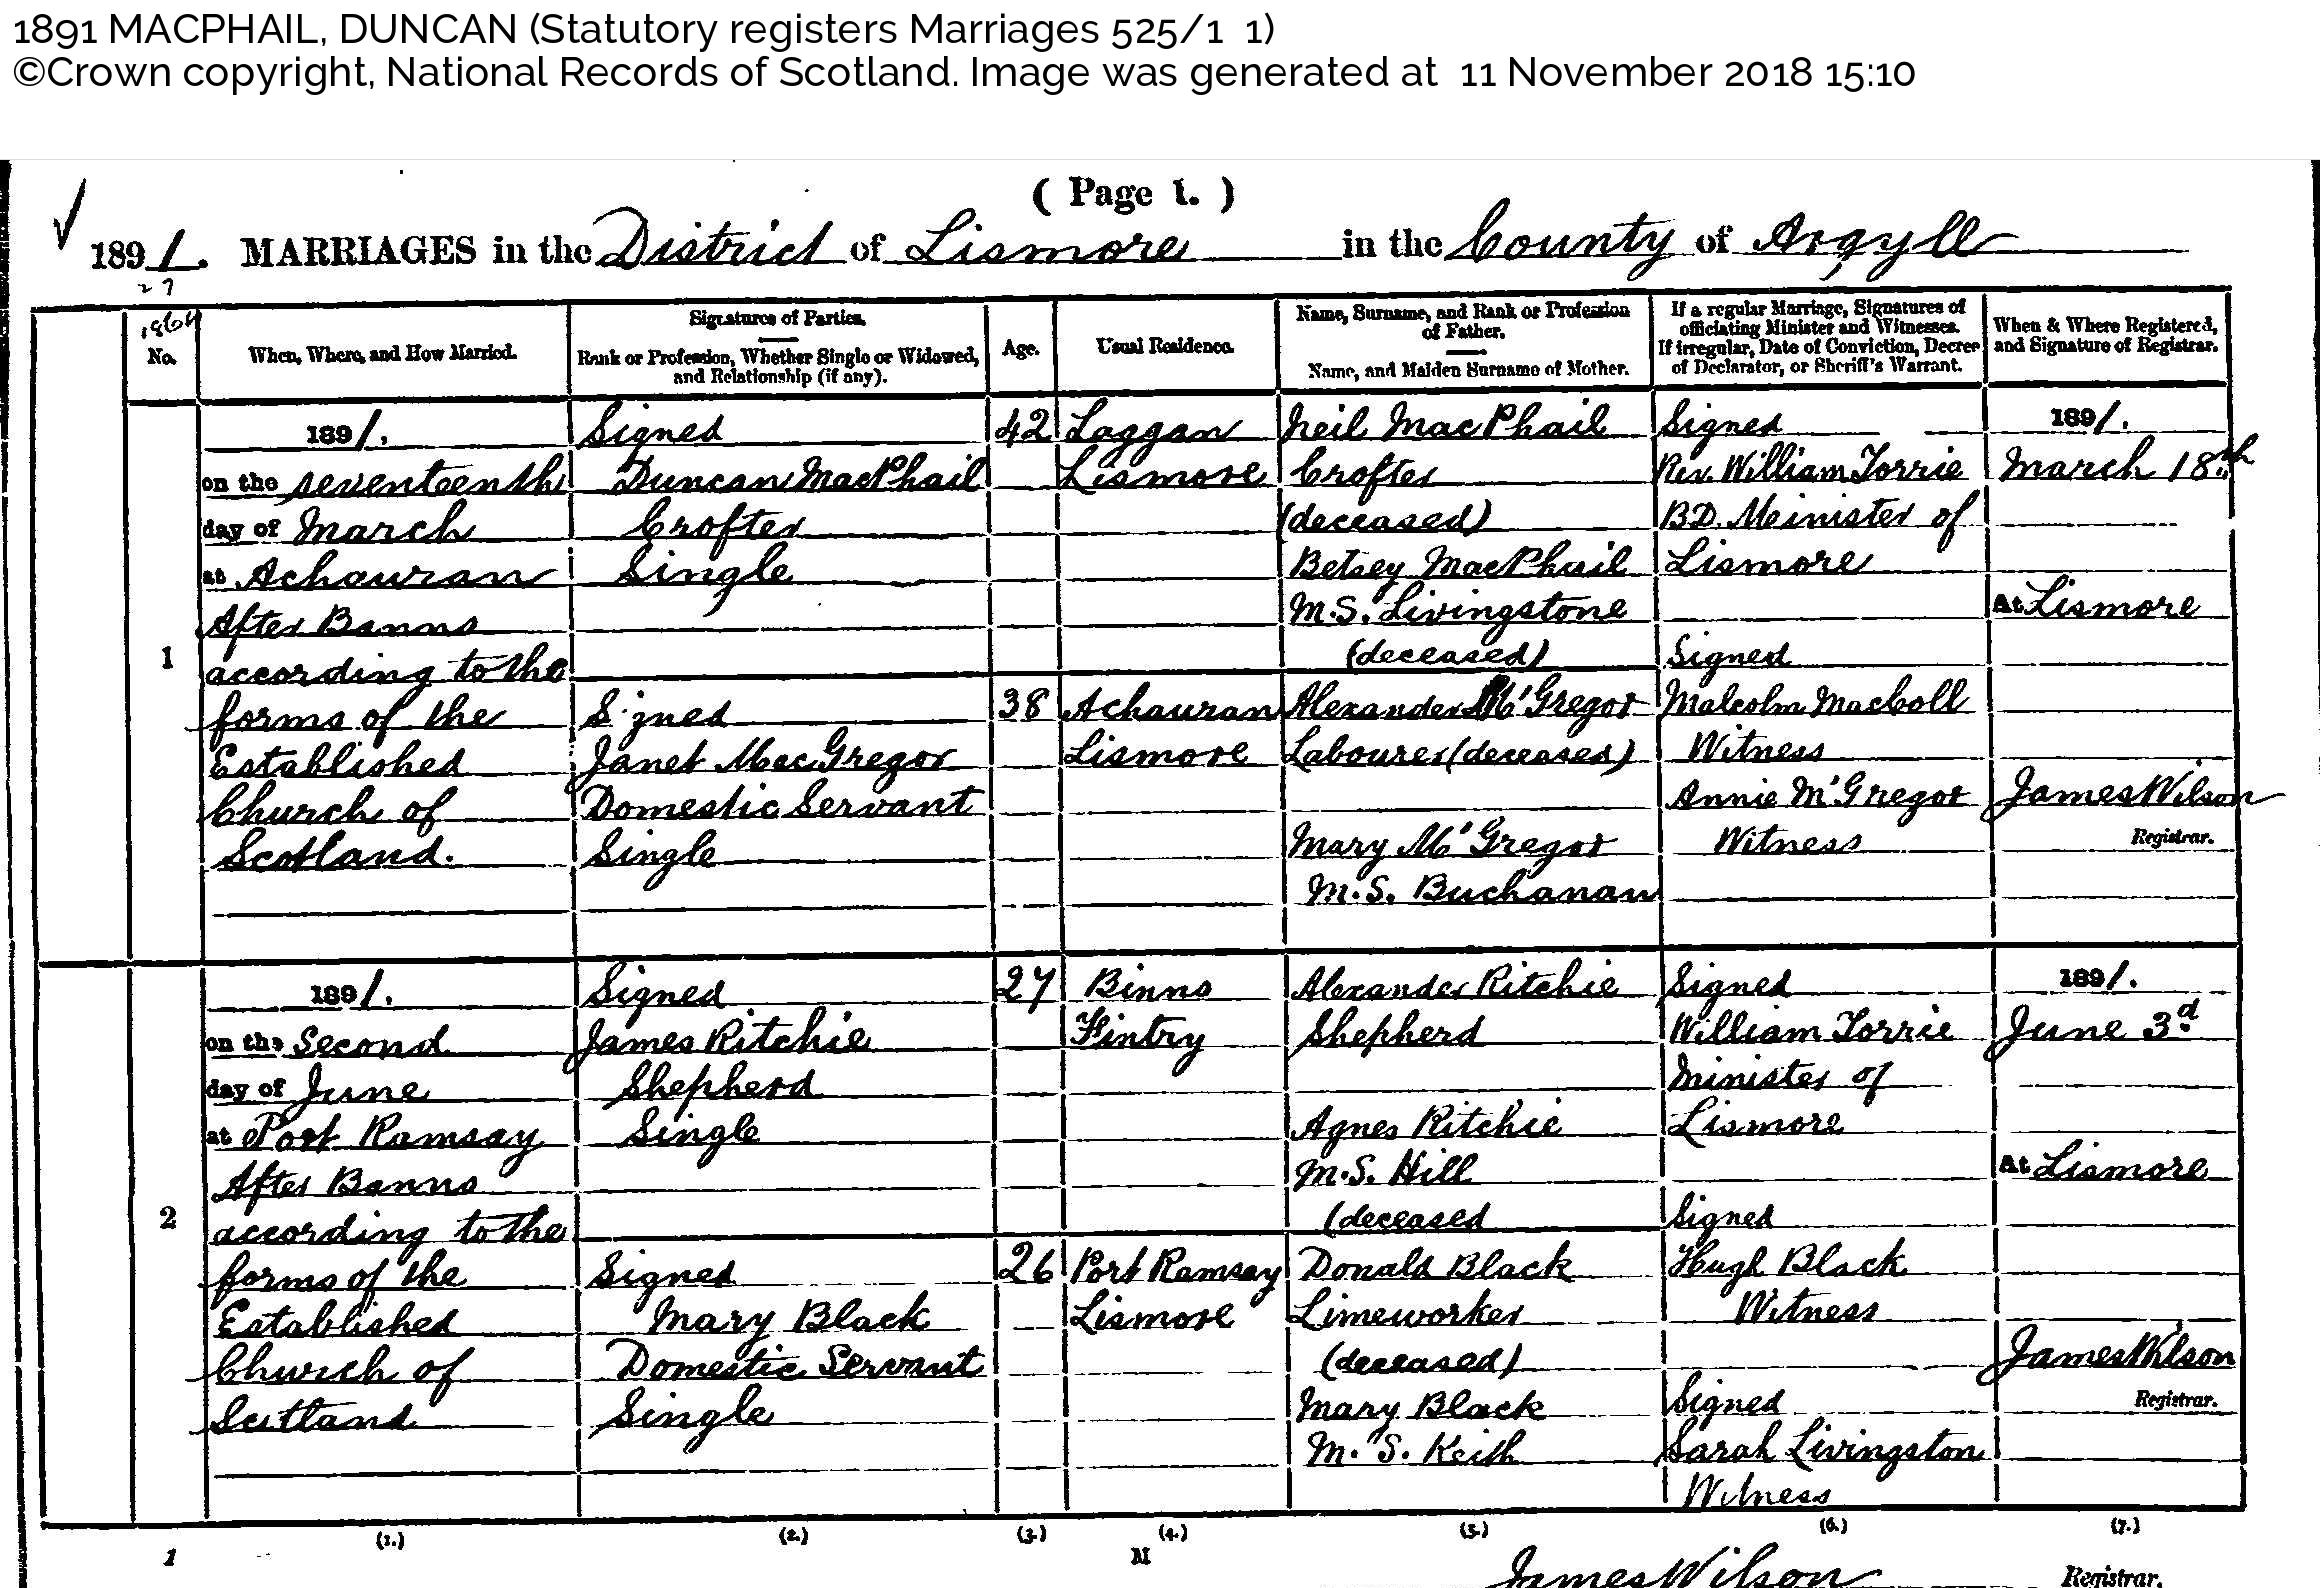 1891 MACPHAIL, DUNCAN (Statutory registers Marriages 525/1 1)
©Crown copyright, National Records of Scotland. Image was generated at 11 November 2018 15:10
( Page 1. )
1891. MARRIAGES in the District of Lismore in the County of Argyll
27
1864
No.
When, Where, and How Married.
Signatures of Parties.
Rank or Profession, Whether Single or Widowed,
and Relationship (if any).
Age.
Usual Residence.
Name, Surname, and Rank or Profession
of Father.
Name, and Maiden Surname of Mother.
If a regular Marriage, Signatures of
officiating Minister and Witnesses.
If irregular, Date of Conviction, Decree
of Declarator, or Sheriff's Warrant.
When & Where Registered,
and Signature of Registrar.
1
1891.
on the seventeenth
day of March
at Achauran
After Banns
according to the
forms of the
Established
Church of
Scotland.
Signed
Duncan MacPhail
Crofter
Single
Signed
Janet MacGregor
Domestic Servant
Single
42
38
Laggan
Lismore
Achauran
Lismore
Neil MacPhail
Crofter
(deceased)
Betsey MacPhail
M.S. Livingstone
(deceased)
Alexander McGregor
Labourer (deceased)
Mary McGregor
M.S. Buchanan
Signed
Rev. William Torrie
B.D. Meinister of
Lismore
Signed
Malcolm MacColl
Witness
Annie McGregor
Witness
1891.
March 18th
At Lismore
James Wilson
Registrar.
2
1891.
on the Second
day of June
at Port Ramsay
After Banns
according to the
forms of the
Established
Church of
Scotland
Signed
James Ritchie
Shepherd
Single
Signed
Mary Black
Domestic Servant
Single
27
26
Binns
Fintry
Port Ramsay
Lismore
Alexander Ritchie
Shepherd
Agnes Ritchie
M.S. Hill
(deceased
Donald Black
Limeworker
(deceased)
Mary Black
M.S. Keith
Signed
William Torrie
Minister of
Lismore
Signed
Hugh Black
Witness
Signed
Sarah Livingston
Witness
1891.
June 3d.
At Lismore
James Wilson
Registrar.
(1.) (2.) (3.) (4.) (5.) (6.) (7.)
1
M
James Wilson Registrar.